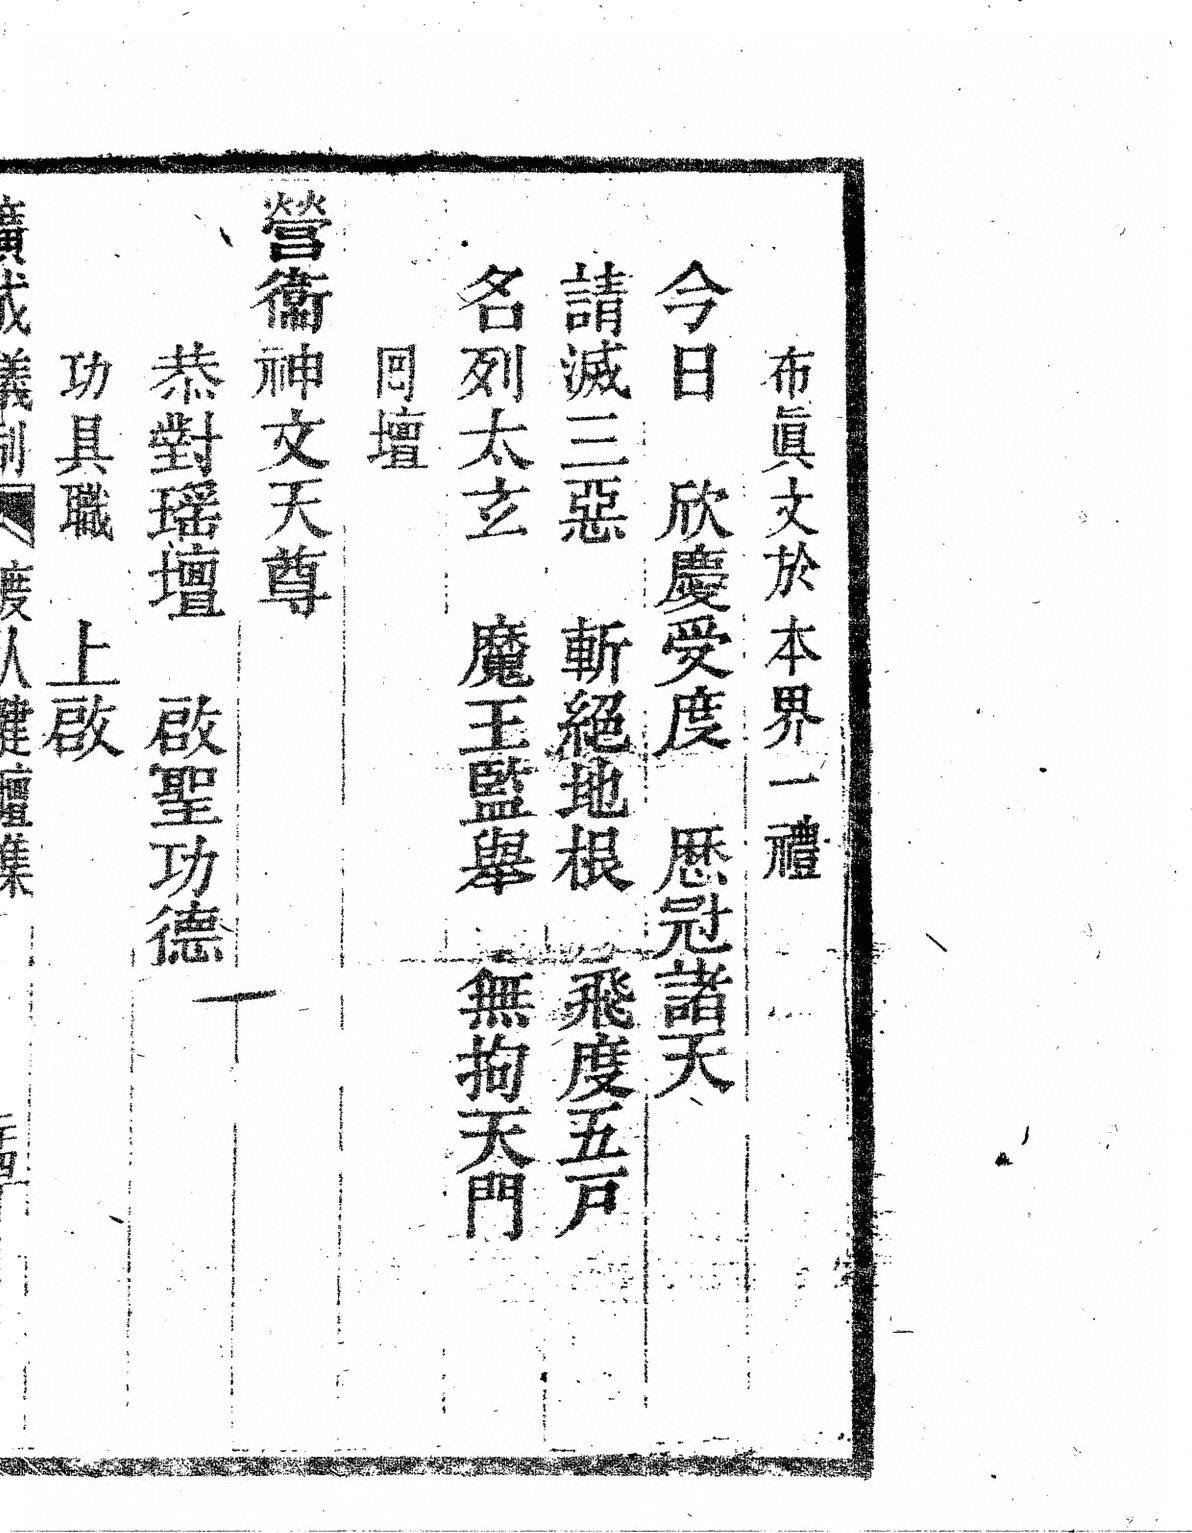 布眞文於本界一禮
今日　欣慶受度　厯冠諸天
請滅三惡　斬絕地根　飛度五戸
名列太玄　魔王監舉　無拘天門
同壇
營衞神文天尊
恭對瑶壇　啟聖功德
功具職　上啟
廣成儀制　度人建壇集